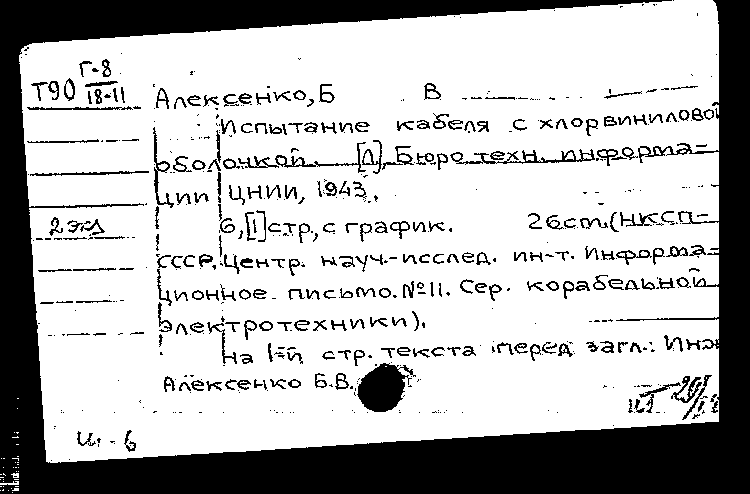 Г-8
Т90 18-11
Алексенко, Б В
Испытание кабеля с хлорвиниловой
оболочкой. [Л], Бюро техн. информа-
ции ЦНИИ, 1943.
2 экз 6, [1] стр, с график. 26 cm. (НКСП-
СССР. Центр. науч.-исслед. ин-т. Информа-
ционное письмо. №11. Сер. корабельной
электротехники).
На 1-й стр. текста перед загл.: Инж
Алексенко Б.В.